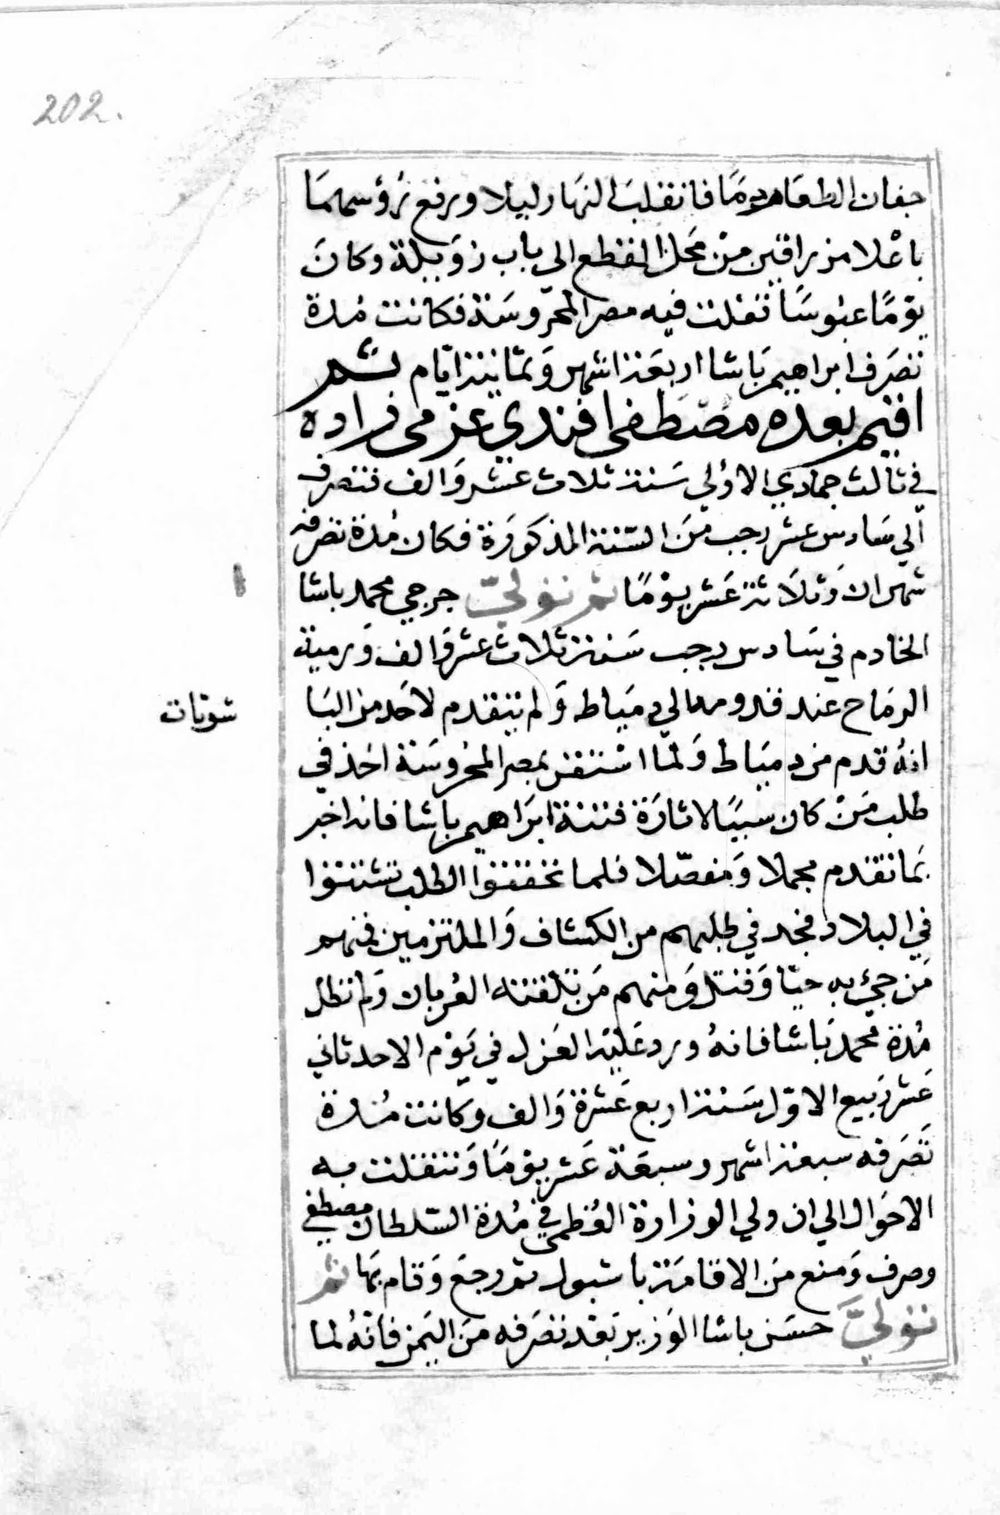 202.
جفان الطعام دومًا فانقلب النهار ليلا ورفع رؤسهما
باعلا مزراقين من محل القطع الي باب زويلة وكان
يومًا عبوسًا نقلت فيه مصر المحروسة فكانت مدة
تصرف ابراهيم باشا اربعة اشهر وثمانية ايام ثم
اقيم بعده مصطفى افندي عزمى زاده
في ثالث جمادي الاولي سنة ثلاث عشر والف فتصرف
الي سادس عشر رجب من السنة المذكورة فكان مدة تصرفه
شهران وثلاثة عشر يومًا ثم تولي جرجي محمد باشا
الخادم في سادس رجب سنة ثلاث عشر والف ورمية
الرماح عند قدومه الي دمياط ولم يتقدم لاحد من البا
شوات
انه قدم من دمياط ولما استقر بمصر المحروسة اخذ في
طلب من كان سببًا لاثارة فتنة ابراهيم باشا فانه اخبر
بما تقدم مجملا ومفصلا فلما تحققوا الطلب تشتتوا
في البلاد فجد في طلبهم من الكشاف والملتزمين فمنهم
من جئ به حيًا وقتل ومنهم من تلقته العربان ولم تطل
مدة محمد باشا فانه ورد عليه العزل في يوم الاحد ثاني
عشر ربيع الاول سنة اربع عشرة والف وكانت مدة
تصرفه سبعة اشهر وسبعة عشر يومًا وتنقلت به
الاحوال الي ان ولي الوزارة العظمى في مدة السلطان مصطفي
وصرف ومنع من الاقامة باسنبول ثم رجع وقام بها ثم
تولي حسن باشا الوزير بعد تصرفه من اليمن فانه لما